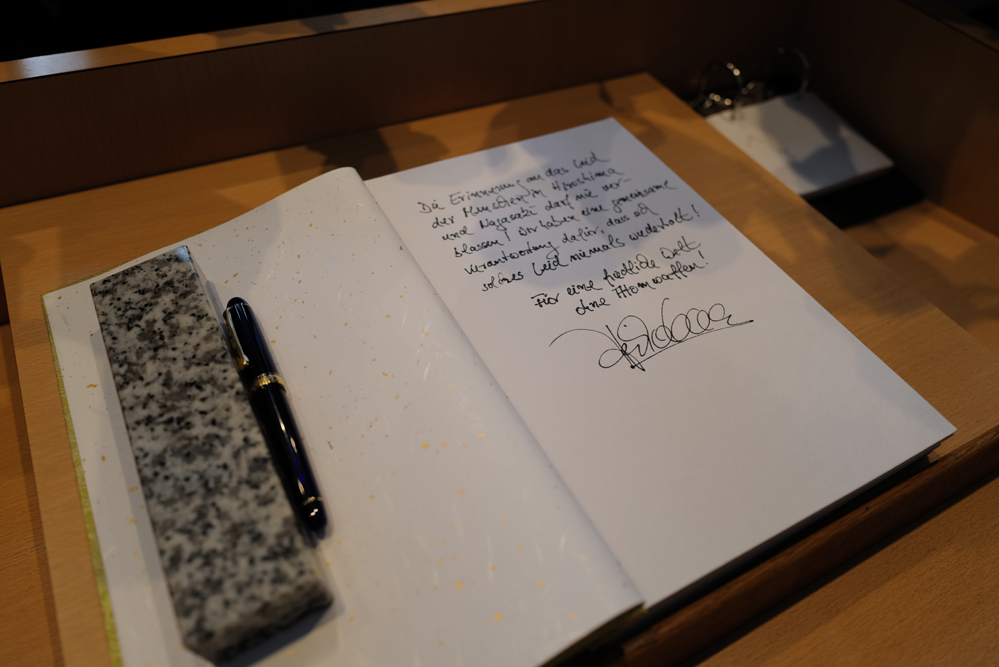 Die Erinnerung an das Leid
der Menschen in Hiroshima
und Nagasaki darf nie ver-
blassen! Wir haben eine gemeinsame
Verantwortung dafür, dass sich
solches Leid niemals wiederholt!
Für eine friedliche Welt
ohne Atomwaffen!